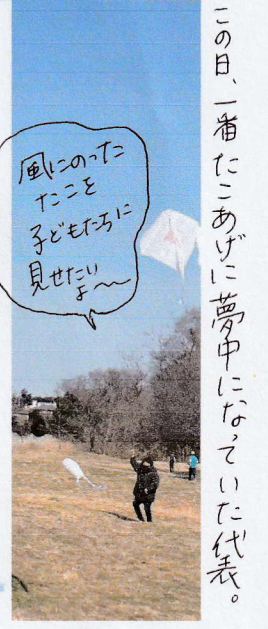 この日、一番たこあげに夢中になっていた代表。
風にのった
たこを
子どもたちに
見せたい
よ〜〜